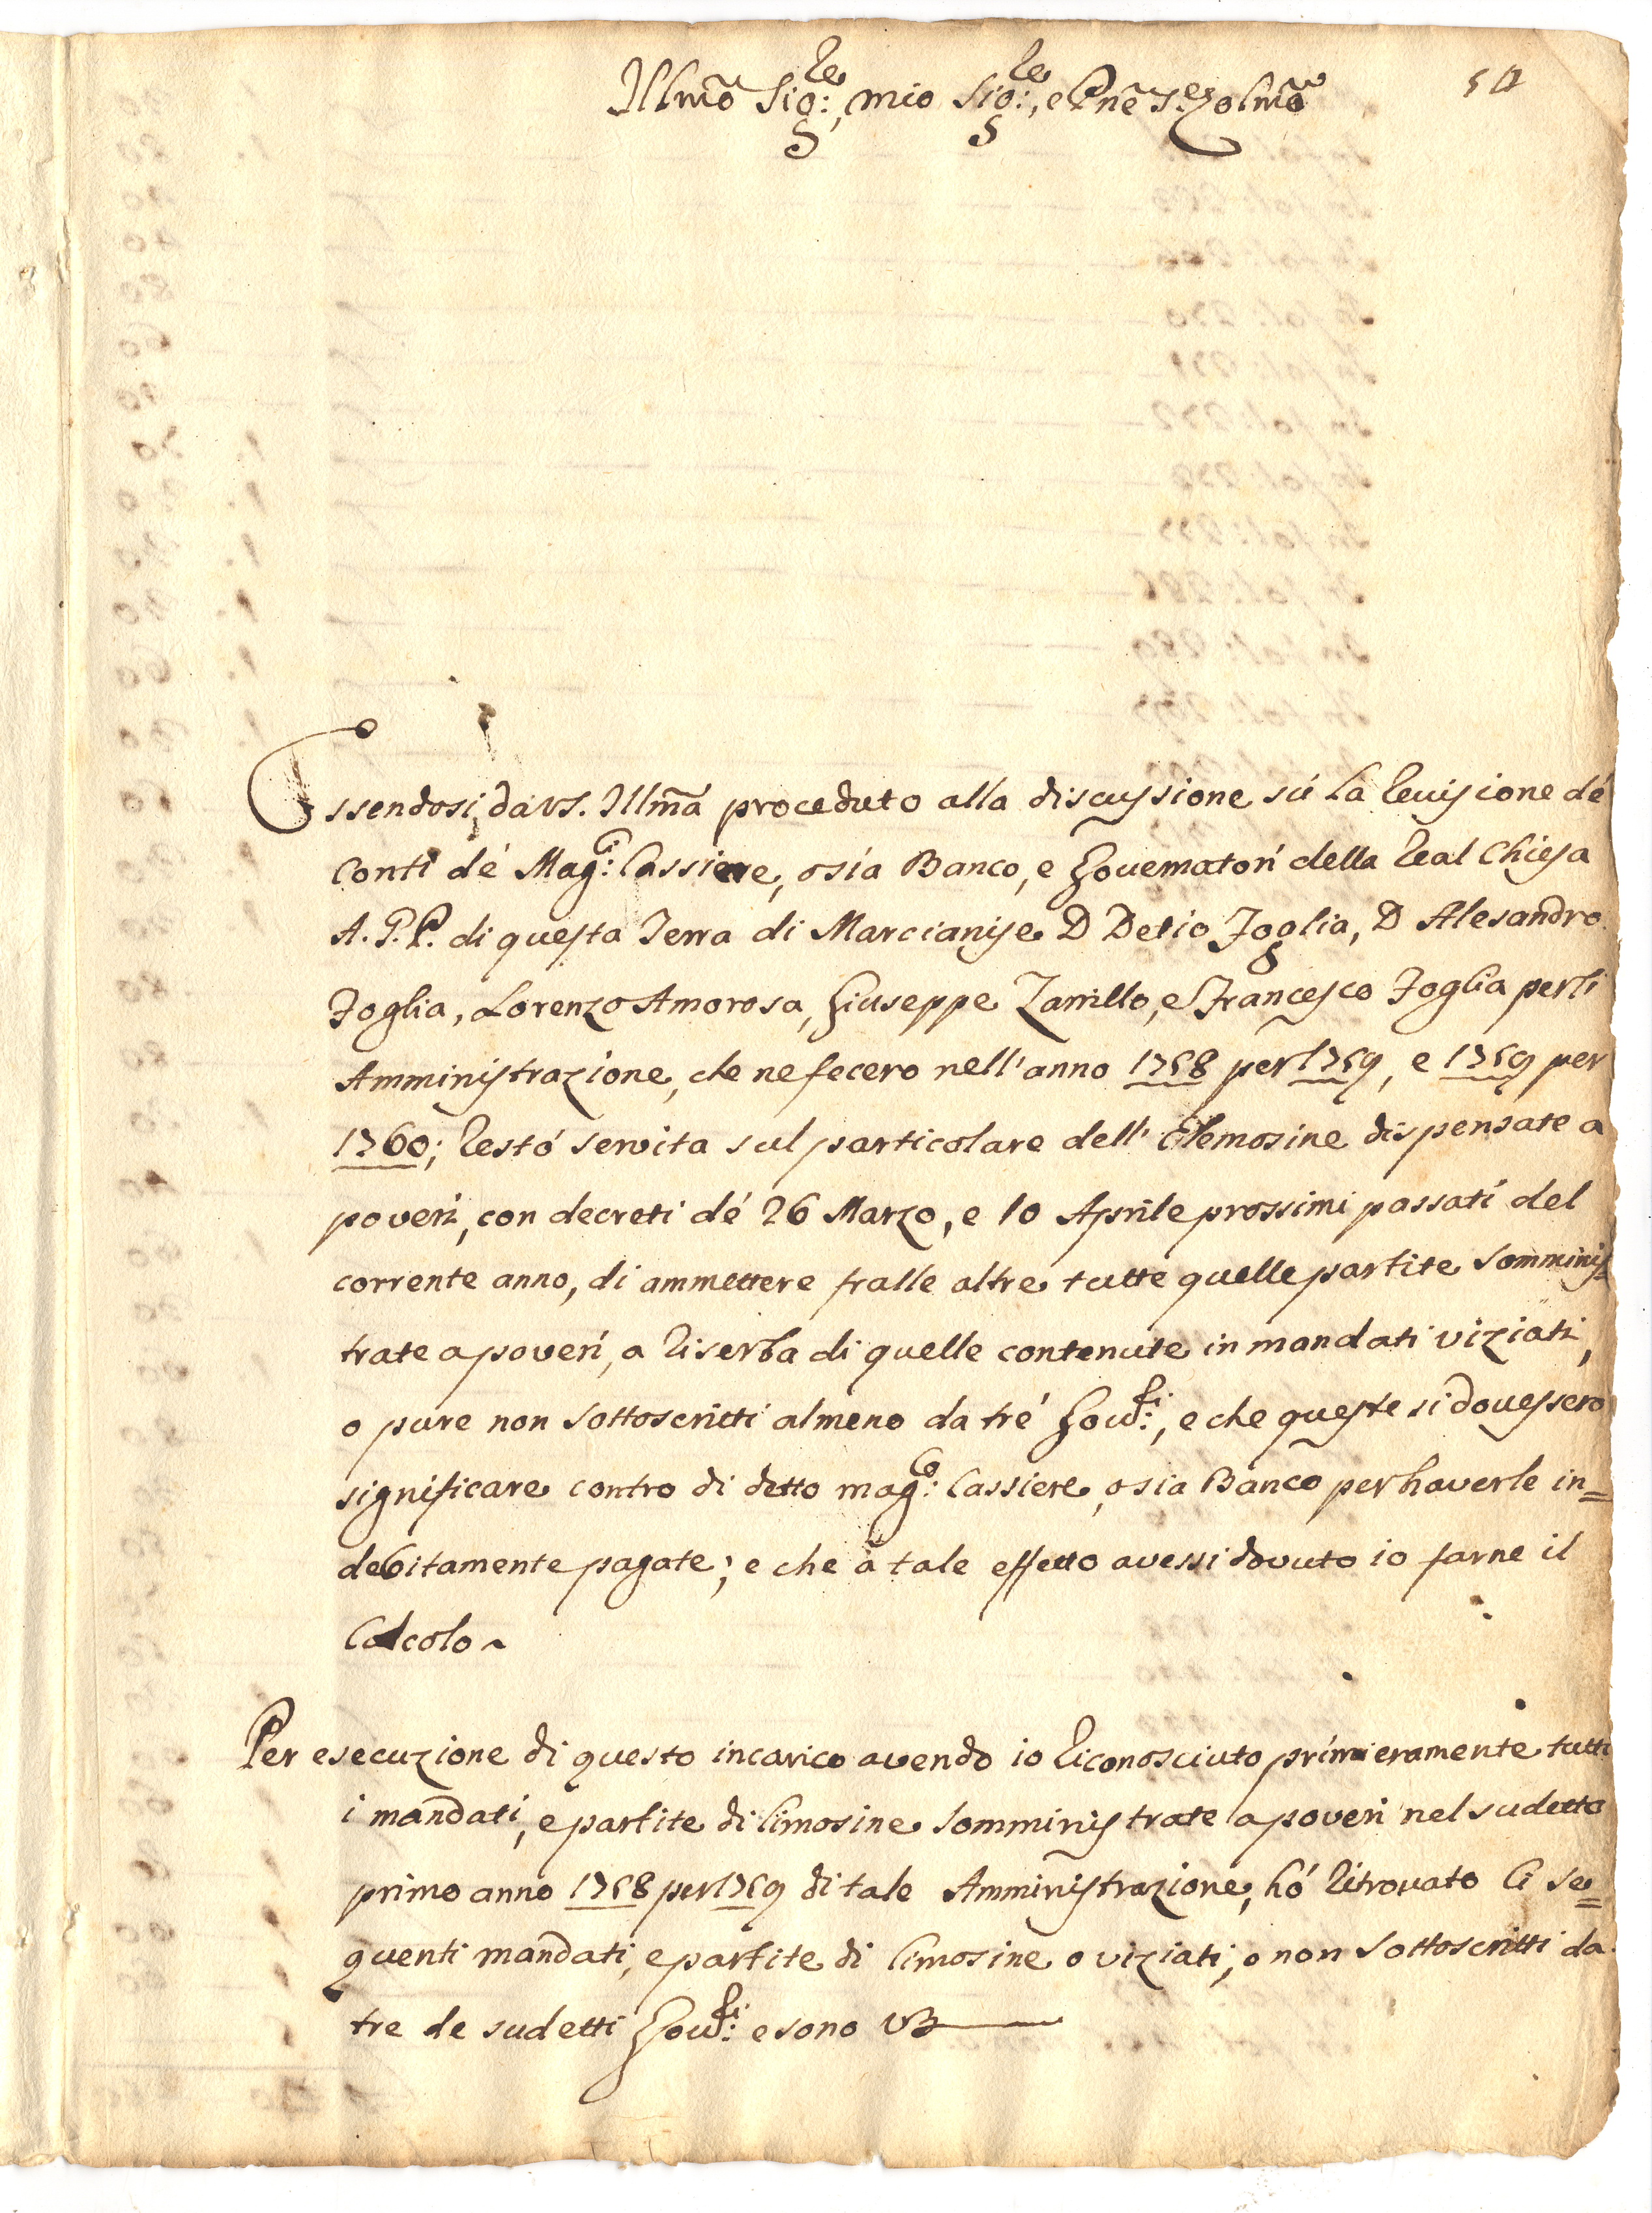 Illmo Sig:re, mio Sig:re, e Pne Sego lmo
54
Essendosi da VS. Illma proceduto alla discussione sù la Revisione dé
Conti dé Mag:ci Cassiere, osia Banco, e Governatori della Real Chiesa
A. G. P. di questa Terra di Marcianise D Decio Foglia, D Alesandro
Foglia, Lorenzo Amorosa, Giuseppe Zarrillo, e Francesco Foglia per li
Amministrazione, che ne fecero nell'anno 1758 per 1759, e 1759 per
1760; Restó servita sul particolare dell' Elemosine dispensate a
poveri, con decreti dé 26 Marzo, e 10 Aprile prossimi passati del
corrente anno, di ammettere fralle altre tutte quelle partite somminis
trate a poveri, a Riserba di quelle contenute in mandati viziati,
o pure non sottoscritti almeno da tré Gov:ri, e che queste si dovessero
significare contro di detto mag:co Cassiere, osia Banco per haverle in=
debitamente pagate; e che à tale effetto avessi dovuto io farne il
Calcolo~
Per esecuzione di questo incarico avendo io Riconosciuto primieramente tutti
i mandati, e partite di limosine somministrate a poveri nel sudetto
primo anno 1758 per 1759 di tale Amministrazione, hó Ritrovato li se=
quenti mandati, e partite di limosine o viziati, o non sottoscritti da
tre de sudetti Gov:ri e sono VB